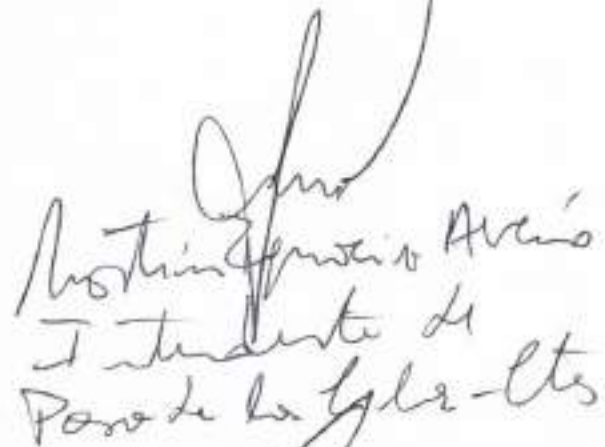 Martín Ignacio Ascúa
Intendente de
Paso de los Libres - Ctes